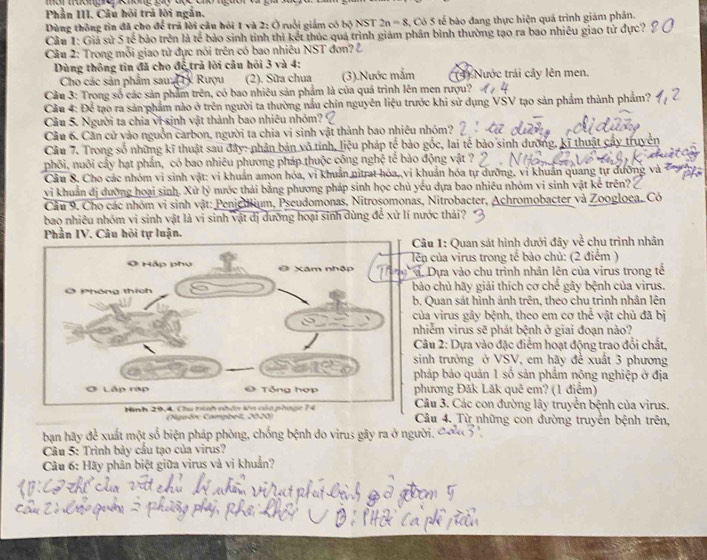 Phần III. Câu hỏi trả lời ngắn.
Dùng thông tin đã cho để trả lời câu hỏi 1 và 2: Ở ruồi giấm có bộ NST 2n = 8, Có 5 tế bào đang thực hiện quá trình giảm phân.
Câu 1: Giả sử 5 tế bào trên là tế bào sinh tinh thì kết thúc quá trình giảm phân bình thường tạo ra bao nhiêu giao tử đực? 20
Câu 2: Trong mỗi giao tử đực nói trên có bao nhiêu NST đơn?
Dùng thông tin đã cho để trả lời câu hỏi 3 và 4:
Cho các sản phẩm sau: (1). Rượu (2). Sữa chua (3).Nước mắm (4).Nước trái cây lên men.
Câu 3: Trong số các sản phẩm trên, có bao nhiêu sản phẩm là của quá trình lên men rượu? 1, 4
Câu 4: Để tạo ra sản phẩm nào ở trên người ta thường nấu chín nguyên liệu trước khi sử dụng VSV tạo sản phẩm thành phẩm? 1, 2
Câu 5. Người ta chia vi sinh vật thành bao nhiêu nhóm? 2
Câu 6. Căn cứ vào nguồn carbon, người ta chia vi sinh vật thành bao nhiêu nhóm? 2 : tự dưỡng, dị dưỡng
Câu 7. Trong số những kĩ thuật sau đây: phân bản vô tính, liệu pháp tế bào gốc, lai tế bào sinh dưỡng, kĩ thuật cấy truyền
phôi, nuôi cấy hạt phấn, có bao nhiêu phương pháp thuộc công nghệ tế bào động vật ? 2
Câu 8. Cho các nhóm vi sinh vật: vi khuẩn amon hóa, vi khuẩn nitrat hóa, vi khuẩn hóa tự dưỡng, vi khuẩn quang tự dưỡng và
vi khuẩn dị dưỡng hoại sinh. Xử lý nước thải bằng phương pháp sinh học chủ yếu dựa bao nhiêu nhóm vi sinh vật kể trên? 2
Câu 9. Cho các nhóm vi sinh vật: Penicillium, Pseudomonas, Nitrosomonas, Nitrobacter, Achromobacter và Zoogloea. Có
bao nhiêu nhóm vi sinh vật là vi sinh vật dị dưỡng hoại sinh dùng để xử lí nước thải? 3
Phần IV. Câu hỏi tự luận.
Câu 1: Quan sát hình dưới đây về chu trình nhân
lên của virus trong tế bào chủ: (2 điểm )
a. Dựa vào chu trình nhân lên của virus trong tế
bào chủ hãy giải thích cơ chế gây bệnh của virus.
b. Quan sát hình ảnh trên, theo chu trình nhân lên
của virus gây bệnh, theo em cơ thể vật chủ đã bị
nhiễm virus sẽ phát bệnh ở giai đoạn nào?
Câu 2: Dựa vào đặc điểm hoạt động trao đổi chất,
sinh trưởng ở VSV, em hãy đề xuất 3 phương
pháp bảo quản 1 số sản phẩm nông nghiệp ở địa
phương Đăk Lăk quê em? (1 điểm)
Câu 3. Các con đường lây truyền bệnh của virus.
Câu 4. Từ những con đường truyền bệnh trên,
Hấp phụ
Xâm nhập
Phóng thích
Lắp ráp
Tổng hợp
Hình 29.4. Chu trình nhân lên của phage T4
(Nguồn: Campbell, 2020)
bạn hãy đề xuất một số biện pháp phòng, chống bệnh do virus gây ra ở người. câu 3
Câu 5: Trình bày cấu tạo của virus?
Câu 6: Hãy phân biệt giữa virus và vi khuẩn?